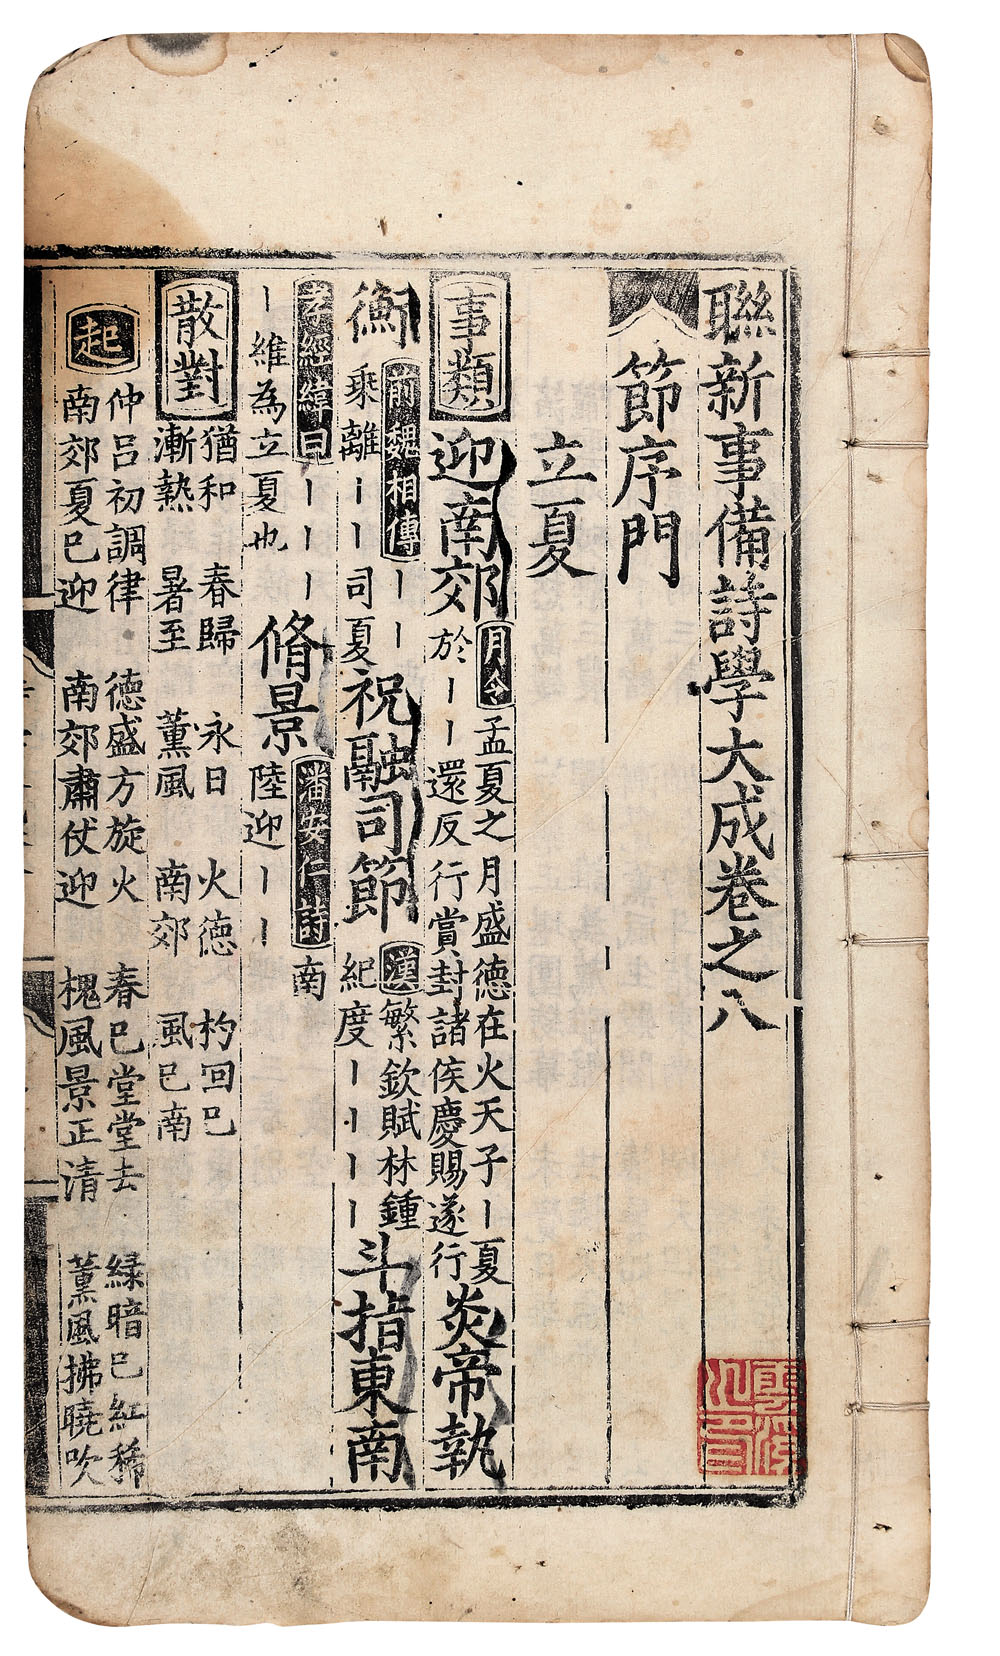 聯新事備詩學大成卷之八
節序門
立夏
事類 迎南郊 月令 孟夏之月盛德在火天子丨夏
於丨丨還反行賞封諸侯慶賜遂行 炎帝執
衡 前魏相傳 丨丨
乘離丨丨司夏 祝融司節 漢 繁欽賦林鍾
紀度丨丨丨丨 斗指東南
孝經緯曰丨丨丨
丨維為立夏也 脩景 潘安仁詩 南
陸迎丨丨
散對 猶和 春歸 永日 火德 杓回巳
漸熱 暑至 薰風 南郊 風巳南
起 仲呂初調律 德盛方旋火 春巳堂堂去 緑暗巳紅稀
南郊夏巳迎 南郊肅仗迎 槐風景正清 薰風拂曉吹